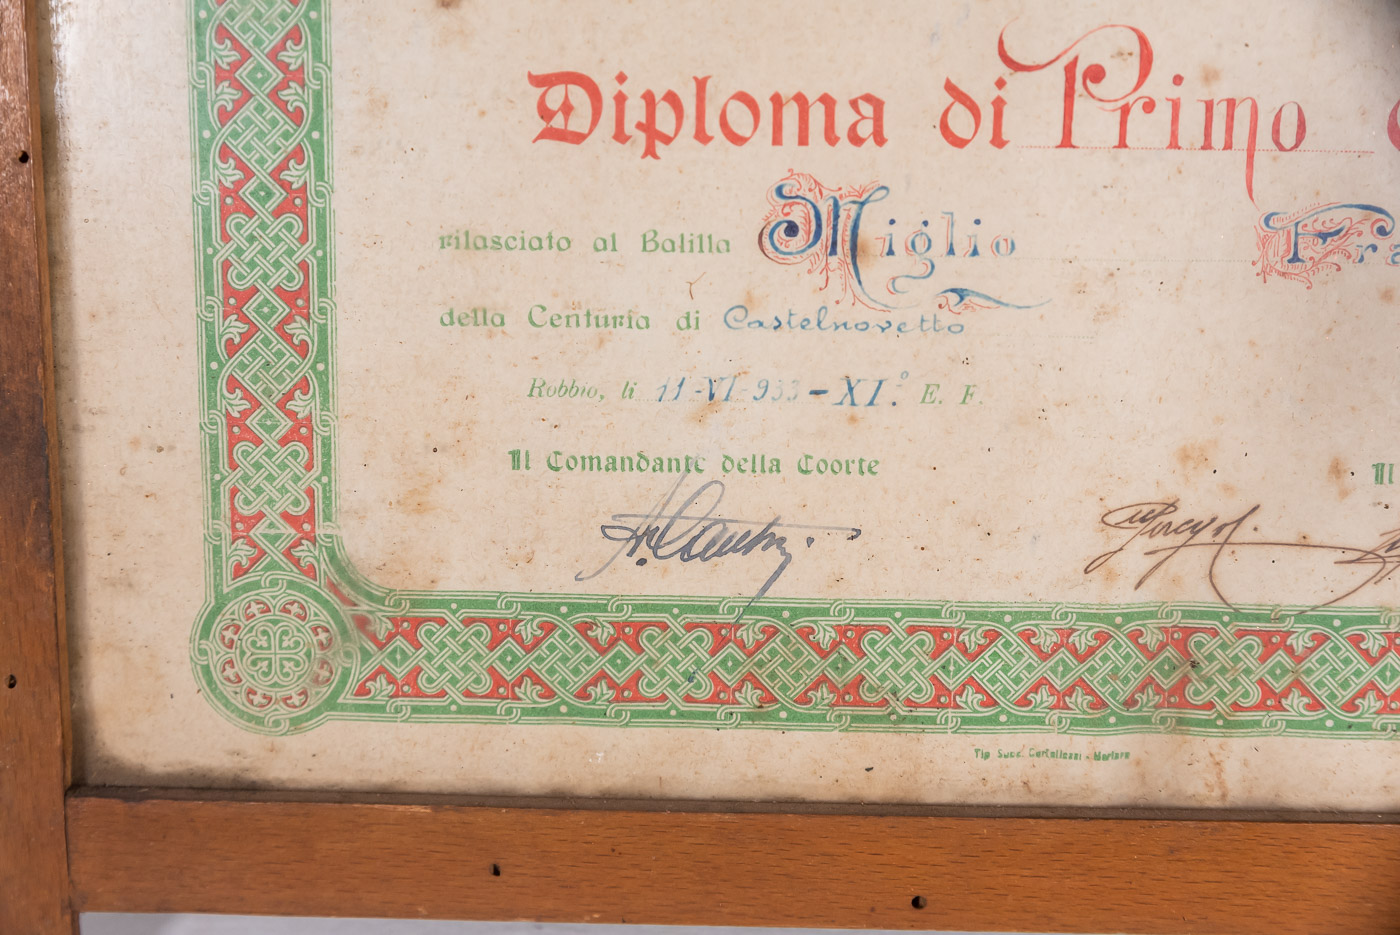 Diploma di Primo
rilasciato al Balilla Miglio Fra
della Centuria di Castelnovetto
Robbio, li 11-VI-933-XI.° E. F.
Il Comandante della Coorte Il
Tip Succ. Cortellezzi - Mortara